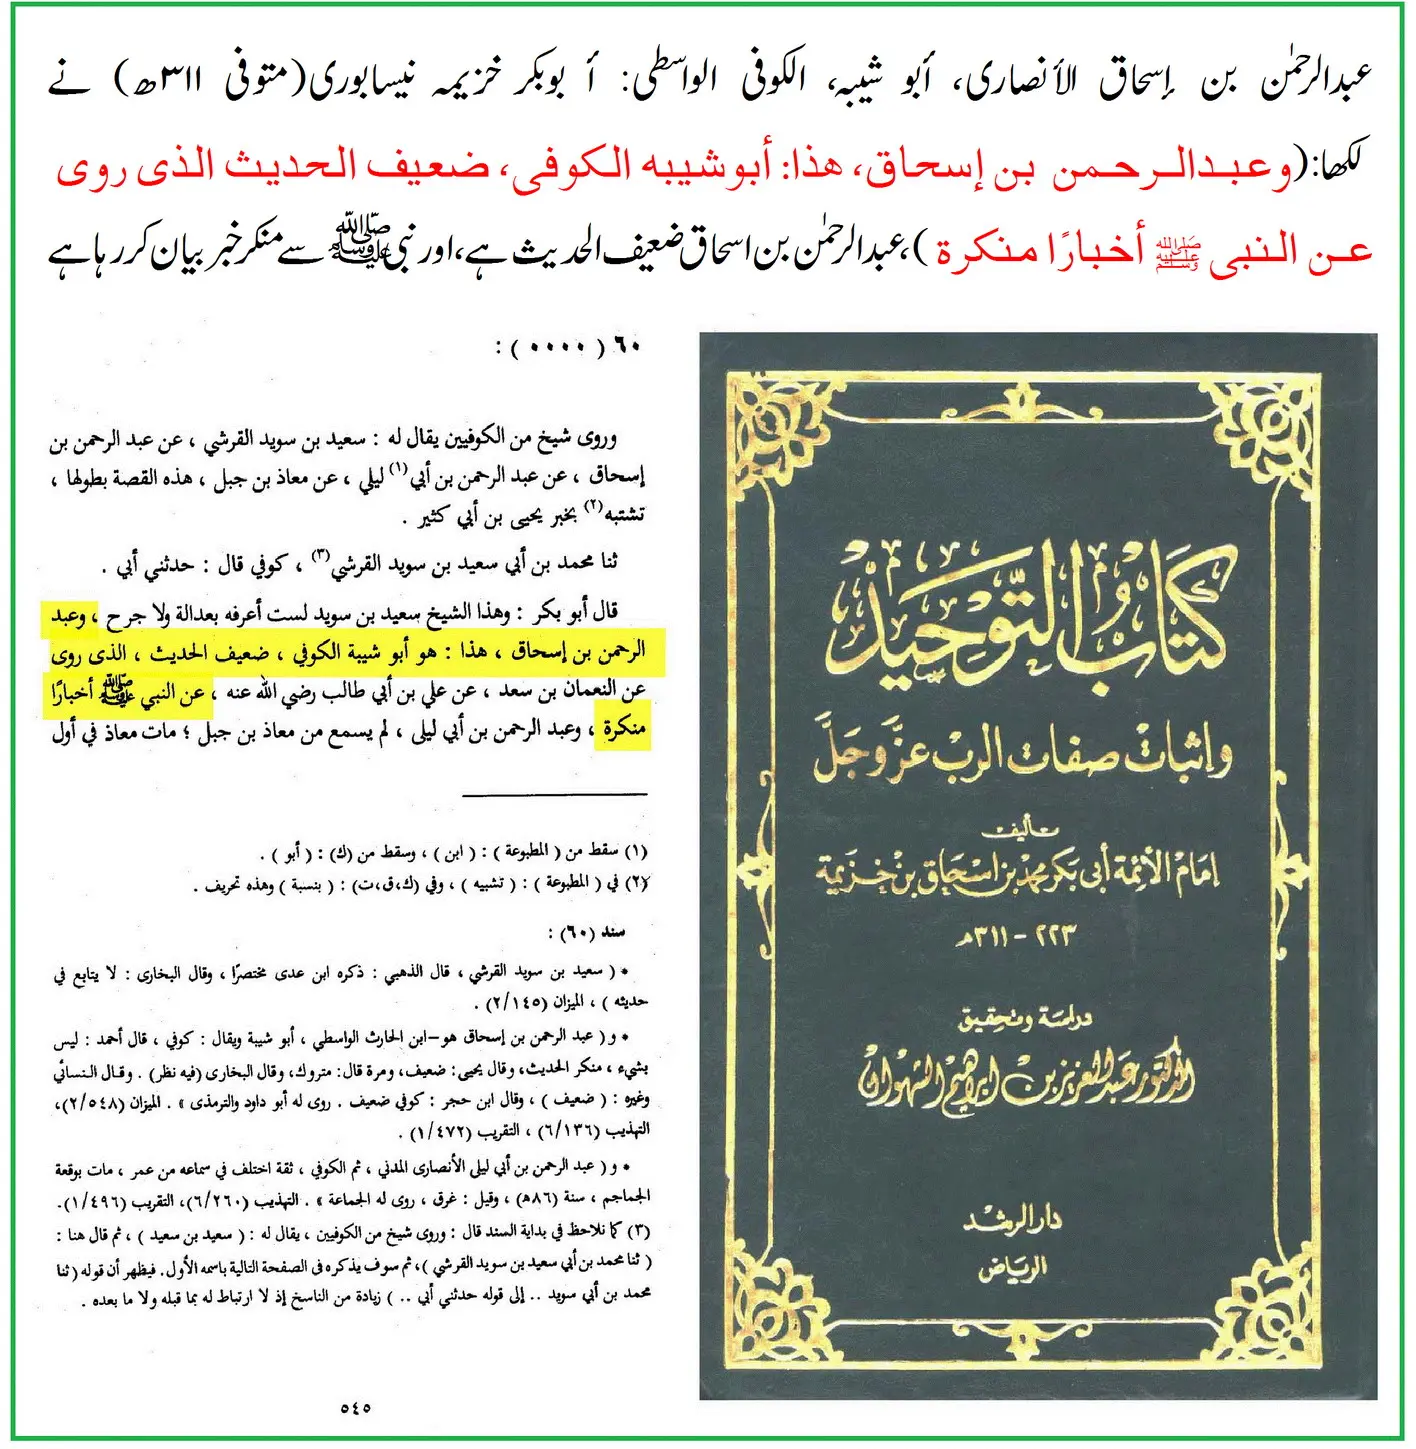 عبدالرحمٰن بن إسحاق الأنصاری، أبو شیبہ، الکوفی الواسطی: أ بوبکر خزیمہ نیسابوری(متوفی ۳۱۱ھ) نے
لکھا:(وعبدالرحمن بن إسحاق، هذا: أبوشيبه الكوفى، ضعيف الحديث الذى روى
عن النبى ﷺ أخبارًا منكرة)، عبدالرحمٰن بن اسحاق ضعیف الحدیث ہے، اور نبی ﷺ سے منکر خبر بیان کر رہا ہے
٦٠ ( ٠٠٠٠ ) :
وروى شيخ من الكوفيين يقال له : سعيد بن سويد القرشي ، عن عبد الرحمن بن
إسحاق ، عن عبد الرحمن بن أبي(١) ليلي ، عن معاذ بن جبل ، هذه القصة بطولها ،
تشتبه(٢) بخبر يحيى بن أبي كثير .
ثنا محمد بن أبي سعيد بن سويد القرشي(٣) ، كوفي قال : حدثني أبي .
قال أبو بكر : وهذا الشيخ سعيد بن سويد لست أعرفه بعدالة ولا جرح ، وعبد
الرحمن بن إسحاق ، هذا : هو أبو شيبة الكوفي ، ضعيف الحديث ، الذى روى
عن النعمان بن سعد ، عن علي بن أبي طالب رضي الله عنه ، عن النبي ﷺ أخبارًا
منكرة ، وعبد الرحمن بن أبي ليلى ، لم يسمع من معاذ بن جبل ؛ مات معاذ في أول
(١) سقط من ( المطبوعة ) : ( ابن ) ، وسقط من (ك) : ( أبو ) .
(٢) في ( المطبوعة ) : ( تشبيه ) ، وفي (ك،ق،ت) : ( بنسبة ) وهذه تحريف .
سند (٦٠) :
* ( سعيد بن سويد القرشي ، قال الذهبي : ذكره ابن عدى مختصرًا ، وقال البخارى : لا يتابع في
حديثه ) ، الميزان (٢/١٤٥) .
* و ( عبد الرحمن بن إسحاق هو-ابن الحارث الواسطي ، أبو شيبة ويقال : كوفي ، قال أحمد : ليس
بشيء ، منكر الحديث، وقال يحيى: ضعيف، ومرة قال: متروك، وقال البخارى (فيه نظر) . وقال النسائي
وغيره : ( ضعيف ) ، وقال ابن حجر : كوفي ضعيف . روى له أبو داود والترمذى » . الميزان (٢/٥٤٨)،
التهذيب (٦/١٣٦) ، التقريب (١/٤٧٢) .
* و ( عبد الرحمن بن أبي ليلى الأنصارى المدني ، ثم الكوفي ، ثقة اختلف في سماعه من عمر ، مات بوقعة
الجماجم ، سنة (٨٦هـ) ، وقيل : غرق ، روى له الجماعة » . التهذيب (٦/٢٦٠)، التقريب (١/٤٩٦).
(٣) كما نلاحظ في بداية السند قال : وروى شيخ من الكوفيين ، يقال له : ( سعيد بن سعيد ) ، ثم قال هنا :
( ثنا محمد بن أبي سعيد بن سويد القرشي )، ثم سوف يذكره فى الصفحة التالية باسمه الأول. فيظهر أن قوله ( ثنا
محمد بن أبي سويد .. إلى قوله حدثني أبي .. ) زيادة من الناسخ إذ لا ارتباط له بما قبله ولا ما بعده .
٥٤٥
كتاب التوحيد
وإثبات صفات الرب عز وجل
تأليف
إمام الأئمة أبي بكر محمد بن اسحاق بن خزيمة
٢٢٣ - ٣١١هـ
دراسة وتحقيق
الدكتور عبد العزيز بن ابراهيم الشهوان
دار الرشد
الرياض